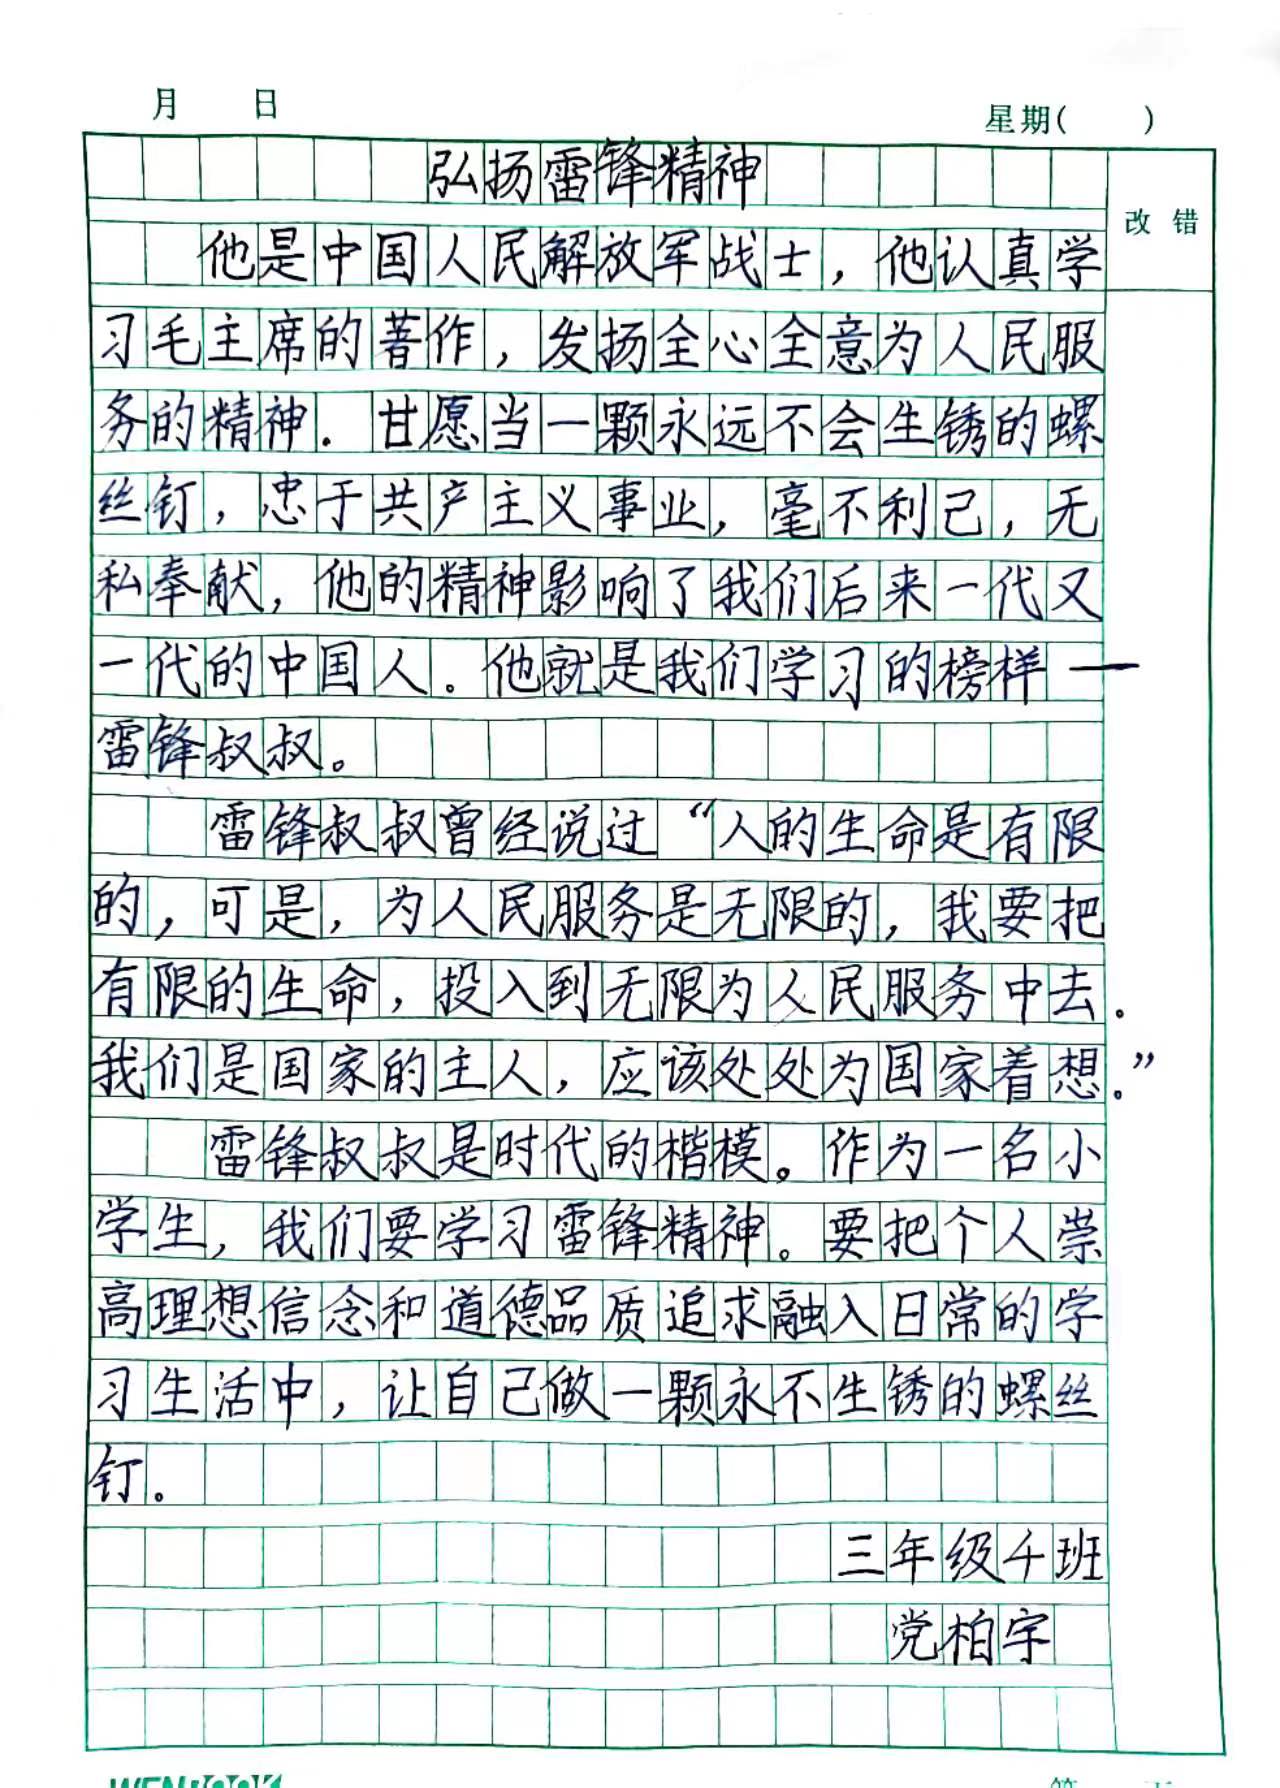 月 日
星期( )
弘扬雷锋精神
改错
他是中国人民解放军战士，他认真学
习毛主席的著作，发扬全心全意为人民服
务的精神．甘愿当一颗永远不会生锈的螺
丝钉，忠于共产主义事业，毫不利己，无
私奉献，他的精神影响了我们后来一代又
一代的中国人。他就是我们学习的榜样—
雷锋叔叔。
雷锋叔叔曾经说过“人的生命是有限
的，可是，为人民服务是无限的，我要把
有限的生命，投入到无限为人民服务中去。
我们是国家的主人，应该处处为国家着想。”
雷锋叔叔是时代的楷模。作为一名小
学生，我们要学习雷锋精神。要把个人崇
高理想信念和道德品质追求融入日常的学
习生活中，让自己做一颗永不生锈的螺丝
钉。
三年级千班
党柏宇